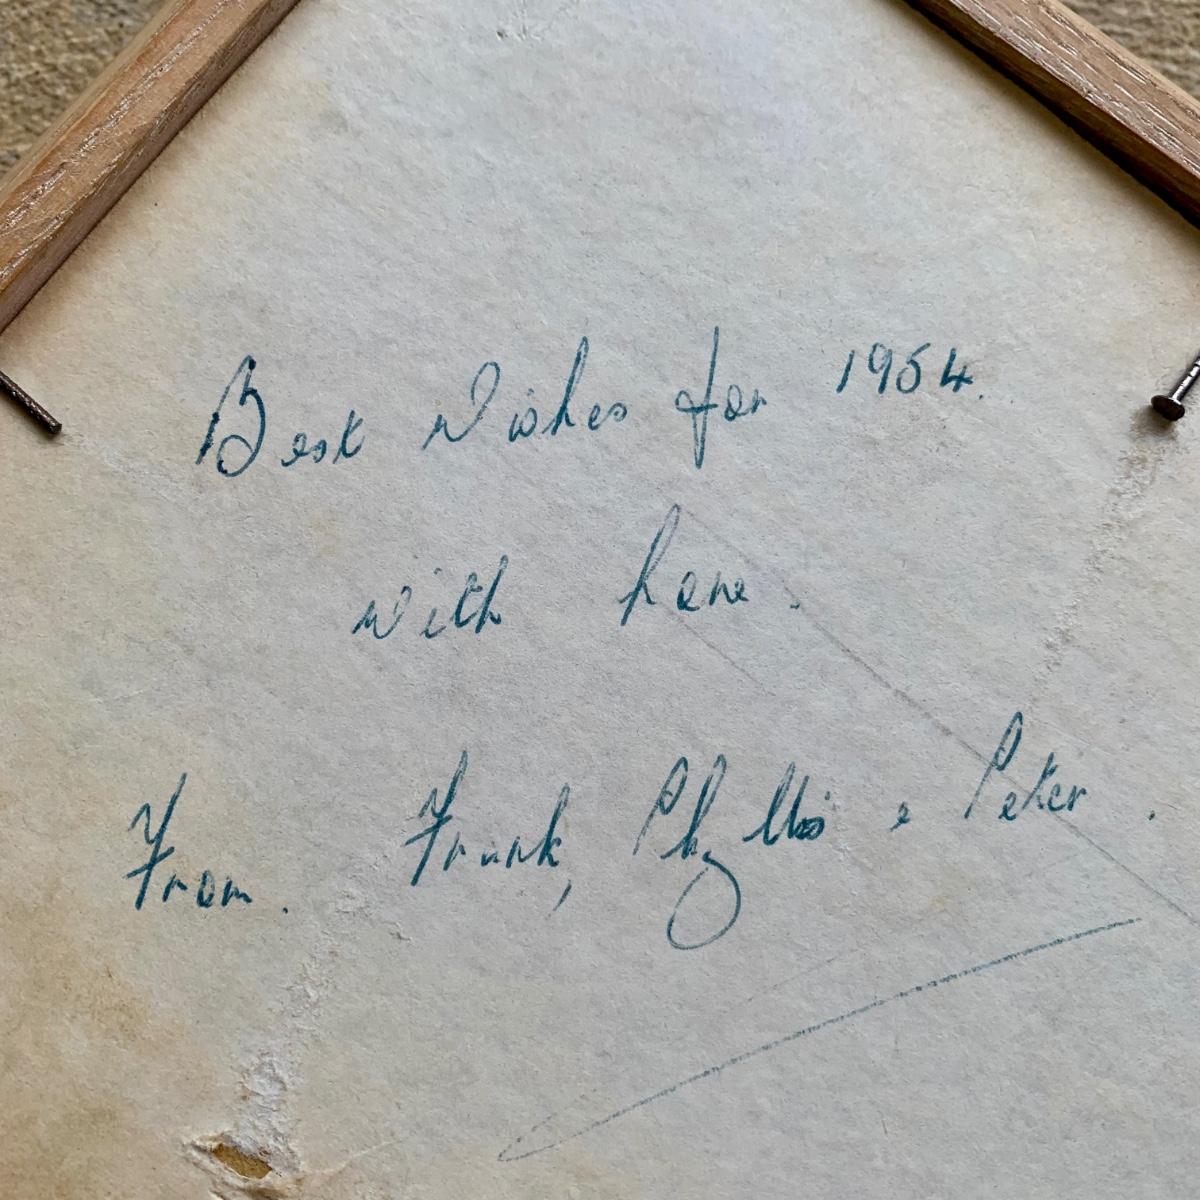 Best Wishes for 1954.
with love.
From. Frank, Phyllis & Peter.